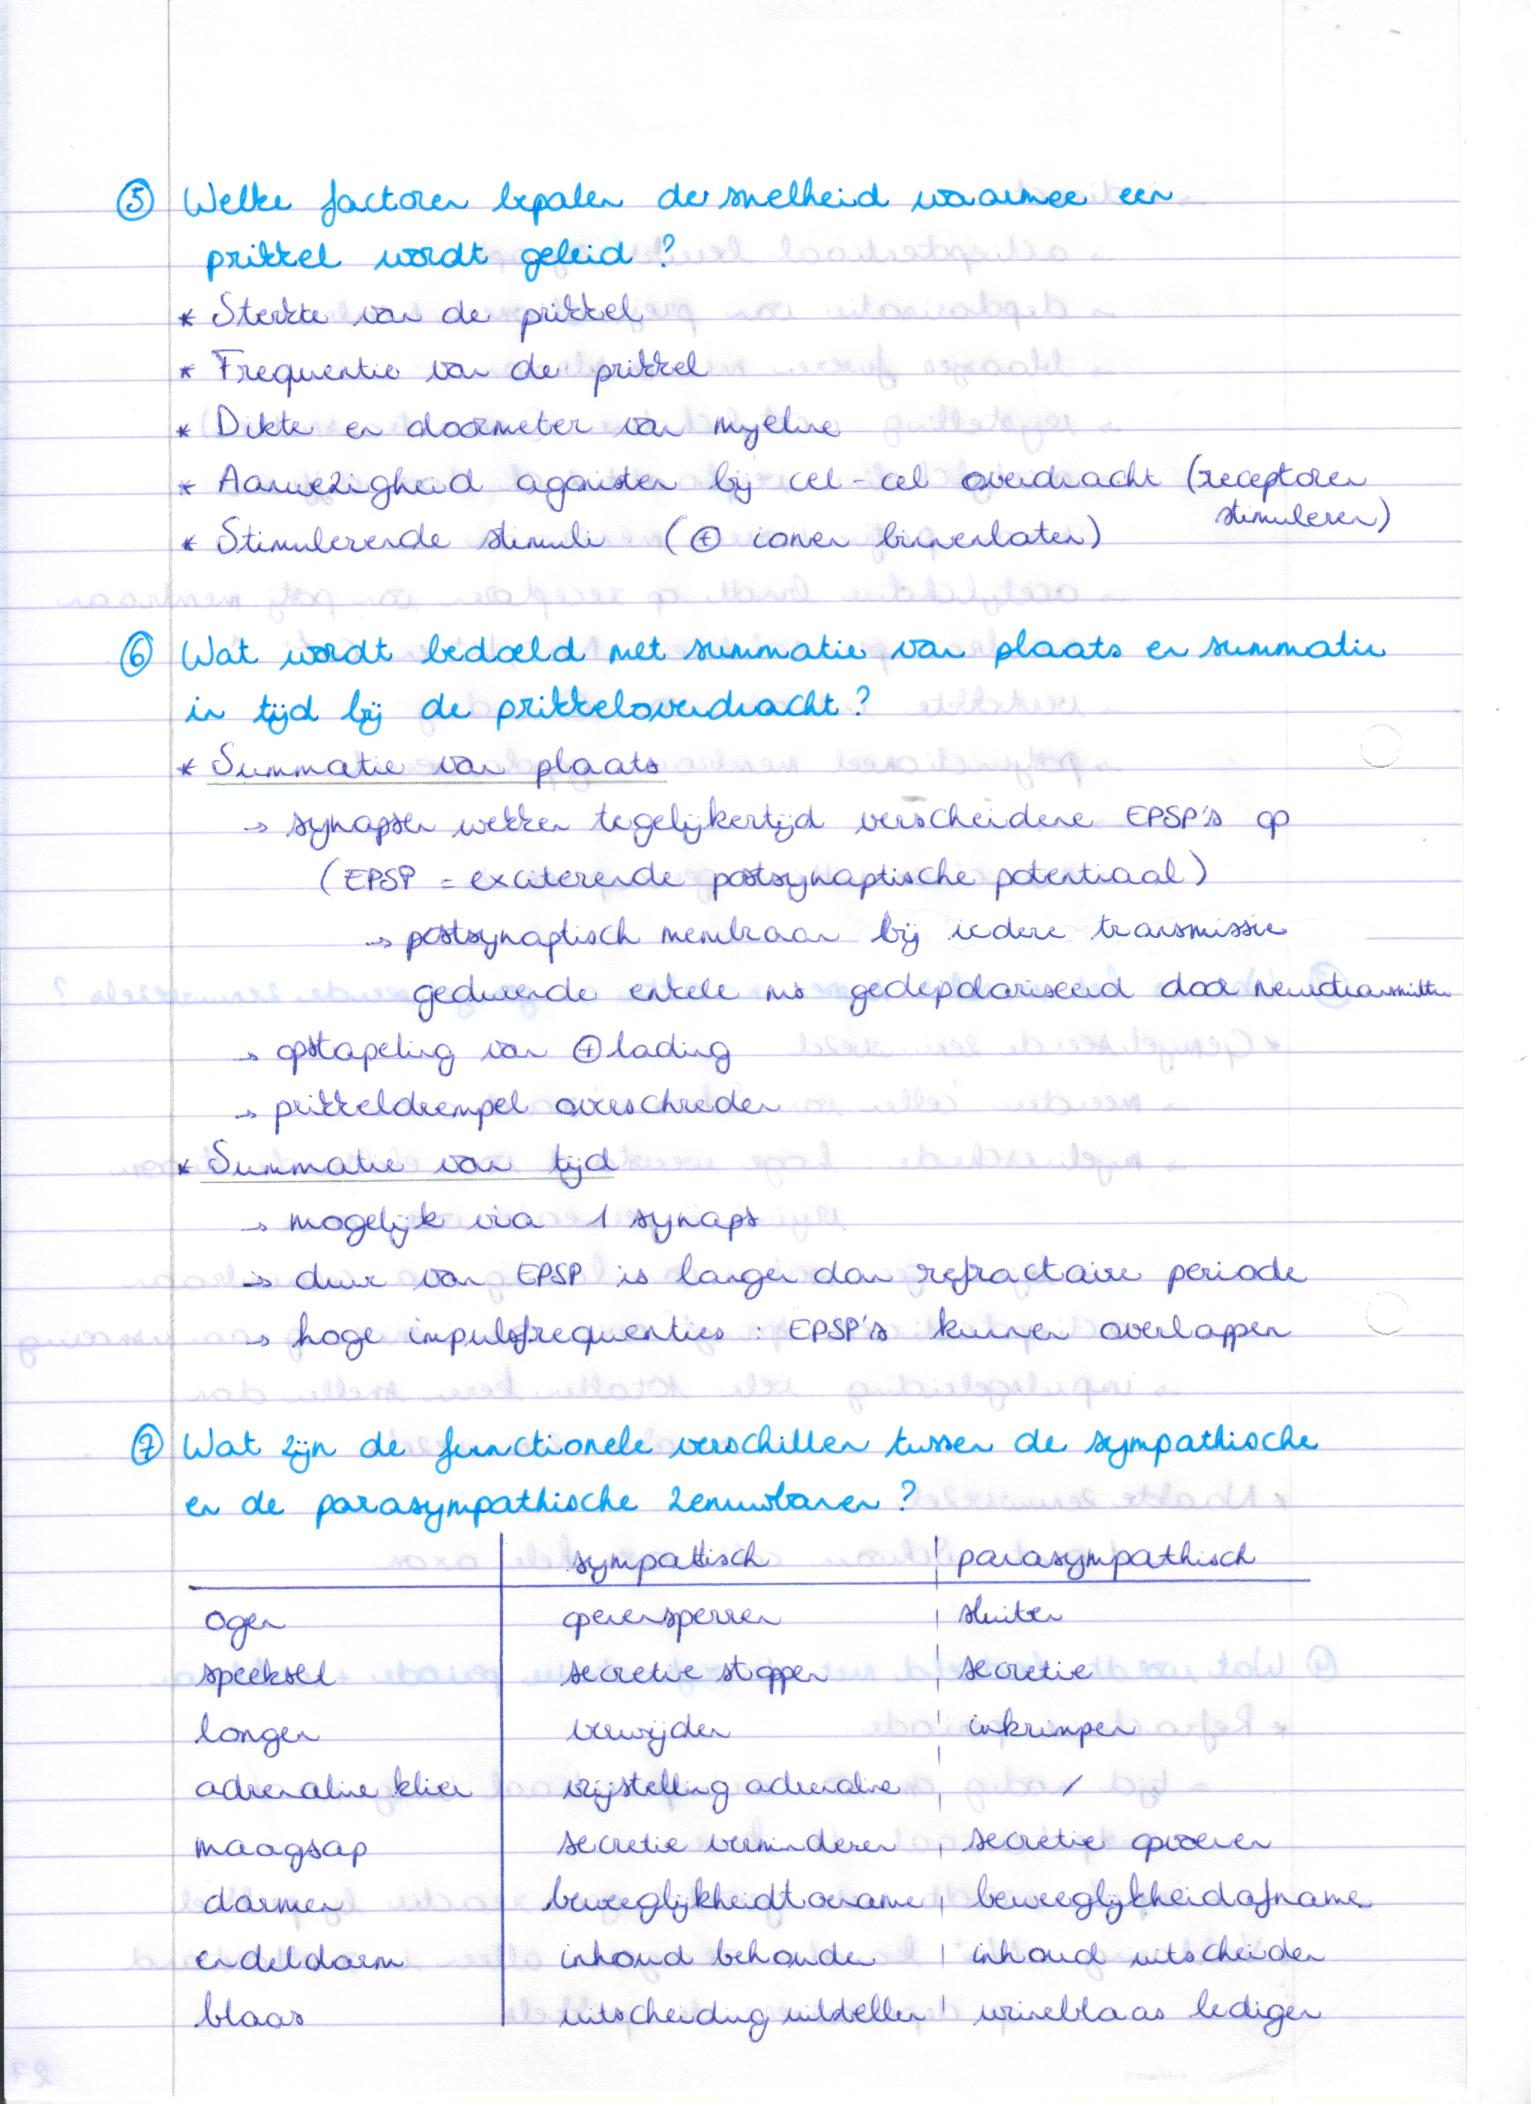 ⑤ Welke factoren bepalen de snelheid waarmee een
prikkel wordt geleid ?
* Sterkte van de prikkel
* Frequentie van de prikkel
* Dikte en doormeter van myeline
* Aanwezigheid agonisten bij cel-cel overdracht (receptoren
stimuleren)
* Stimulerende stimuli (⊕ ionen binnenlaten)
⑥ Wat wordt bedoeld met summatie van plaats en summatie
in tijd bij de prikkeloverdracht ?
* Summatie van plaats
→ synapsen wekken tegelijkertijd verscheidene EPSP's op
(EPSP = exciterende postsynaptische potentiaal)
→ postsynaptisch membraan bij iedere transmissie
gedurende enkele ms gedepolariseerd door neurotransmitter
→ opstapeling van ⊕ lading
→ prikkeldrempel overschreden
* Summatie van tijd
→ mogelijk via 1 synaps
→ duur van EPSP is langer dan refractaire periode
→ hoge impulsfrequenties : EPSP's kunnen overlappen
⑦ Wat zijn de functionele verschillen tussen de sympathische
en de parasympathische zenuwbanen ?
sympathisch parasympathisch
ogen opensperren sluiten
speeksel secretie stoppen secretie
longen verwijden inkrimpen
adrenaline klier vrijstelling adrenaline /
maagsap secretie verminderen secretie opvoeren
darmen beweeglijkheidtoename beweeglijkheidafname
endeldarm inhoud behouden inhoud uitscheiden
blaas uitscheiding uitstellen urineblaas ledigen